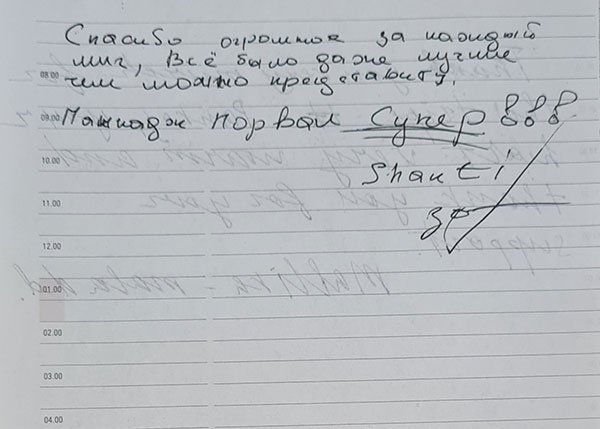 Спасибо огромное за каждый
миг, Всё было даже лучше
чем можно представить.
08.00
09.00 порвал Супер
10.00
Shanti
11.00
12.00
01.00
02.00
03.00
04.00